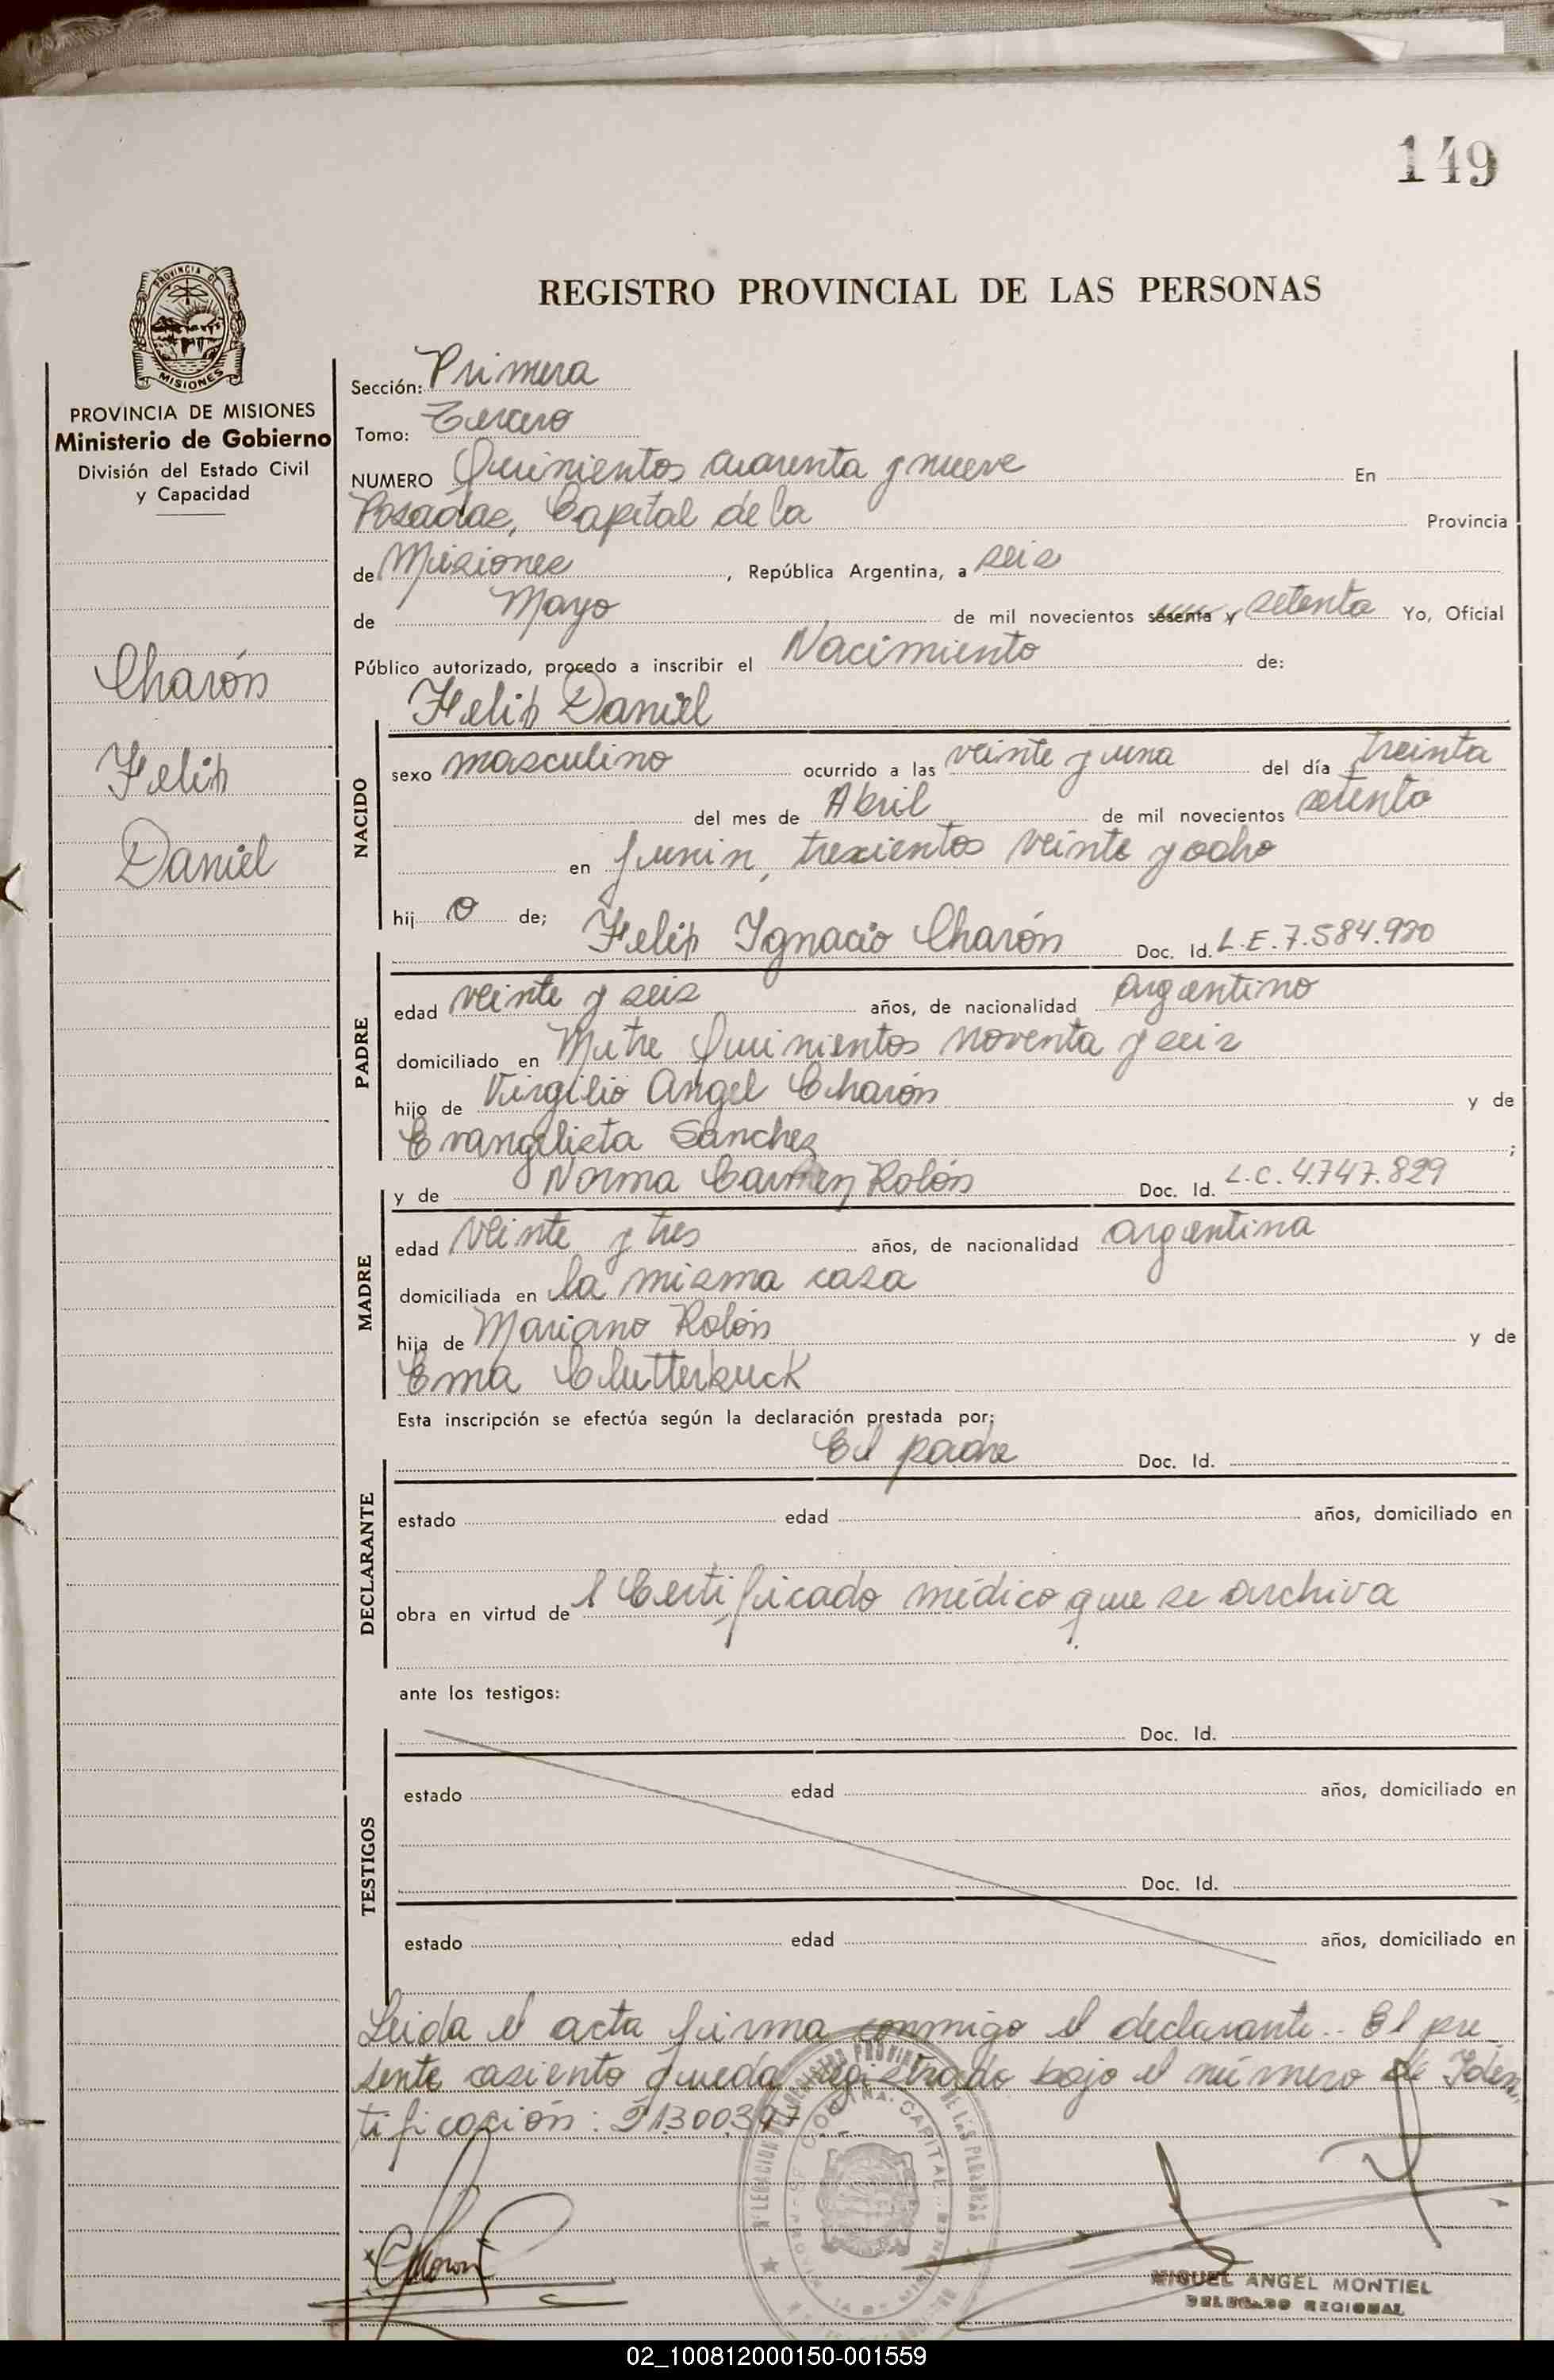 149
PROVINCIA DE
MISIONES
REGISTRO PROVINCIAL DE LAS PERSONAS
PROVINCIA DE MISIONES
Ministerio de Gobierno
División del Estado Civil
y Capacidad
Charón
Felip
Daniel
Sección: Primera
Tomo: Tercero
NUMERO Quinientos cuarenta y nueve En
Posadas, Capital de la Provincia
de Misiones, República Argentina, a seis
de Mayo de mil novecientos sesenta y setenta Yo, Oficial
Público autorizado, procedo a inscribir el Nacimiento de:
Felip Daniel
NACIDO
sexo masculino ocurrido a las veinte y una del día treinta
del mes de Abril de mil novecientos setenta
en Junin, trescientos veinte y ocho
hijo de; Felip Ignacio Charón Doc. Id. L.E. 7.584.930
PADRE
edad veinte y seis años, de nacionalidad argentino
domiciliado en Mitre Quinientos noventa y seis
hijo de Virgilio Angel Charón y de
Evangelista Sanchez;
y de Norma Carmen Rolón Doc. Id. L.C. 4.747.829
MADRE
edad veinte y tres años, de nacionalidad argentina
domiciliada en la misma casa
hija de Mariano Rolón y de
Ema Clutterbuck
Esta inscripción se efectúa según la declaración prestada por:
El padre Doc. Id.
DECLARANTE
estado edad años, domiciliado en
obra en virtud de l Certificado médico que se archiva
ante los testigos:
Doc. Id.
TESTIGOS
estado edad años, domiciliado en
Doc. Id.
estado edad años, domiciliado en
Leida el acta firma conmigo el declarante.. El pre-
sente asiento queda registrado bajo el número de Iden
tificación: 21.300.397
MIGUEL ANGEL MONTIEL
DELEGADO REGIONAL
02_100812000150-001559